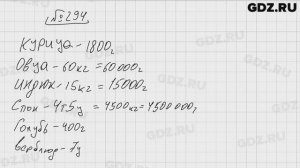 GDZ.RU
№294
Курица - 1800г
Овца - 60кг = 60000г
Индюк - 15кг = 15000г
Слон - 4т5ц = 4500кг = 4500000г
Голубь - 400г
верблюд - 7ц
GDZ.RU